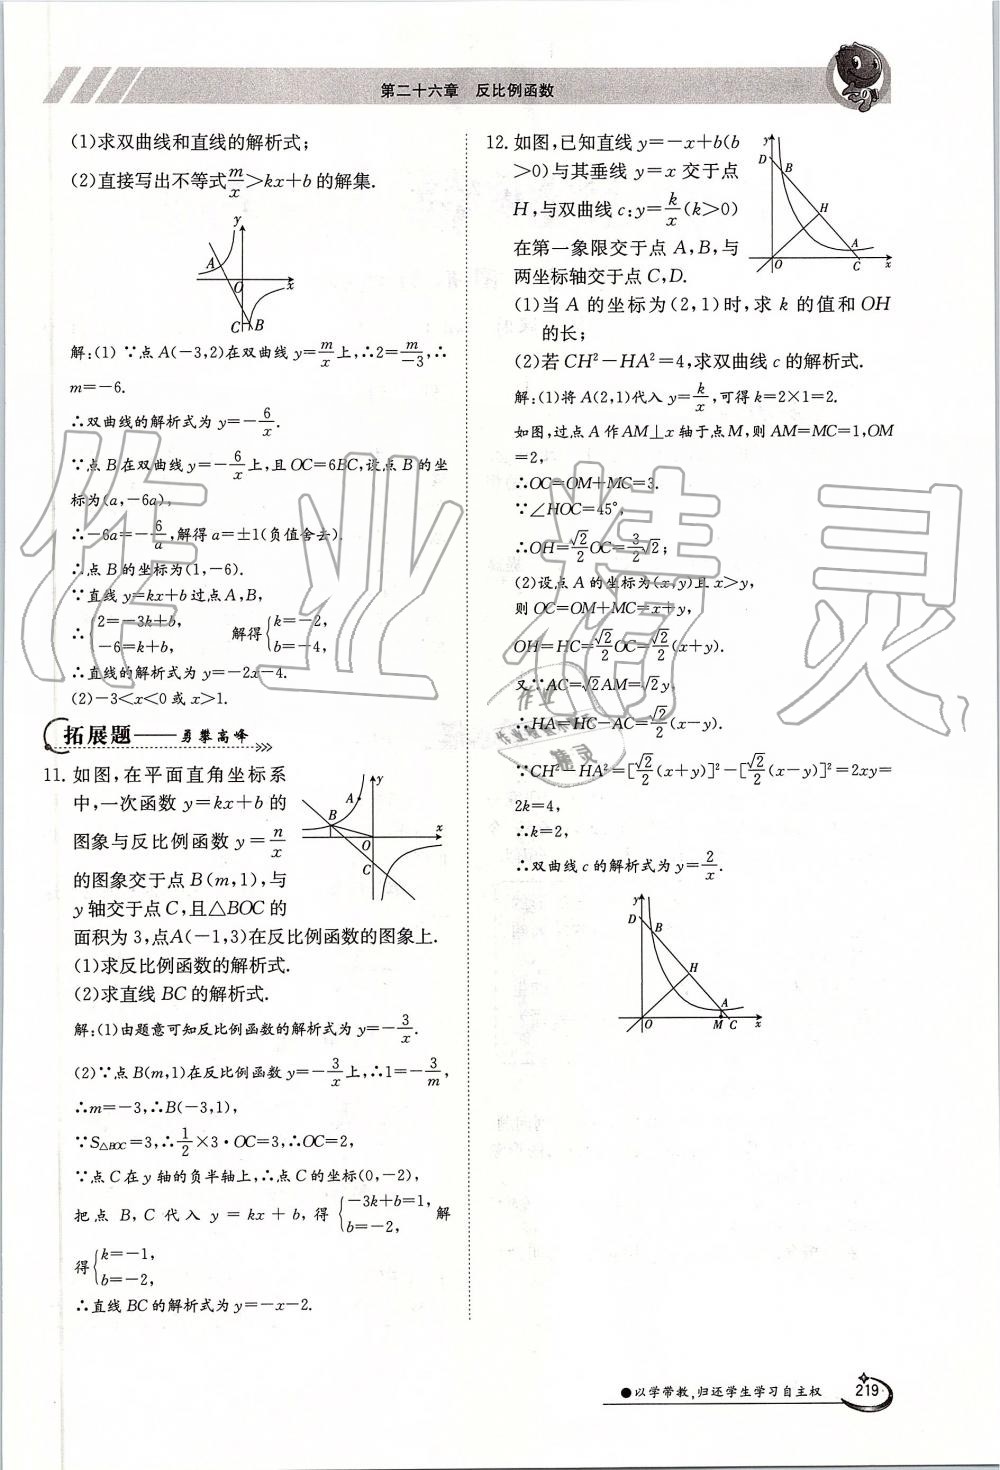 第二十六章 反比例函数
(1)求双曲线和直线的解析式;
(2)直接写出不等式m/x>kx+b的解集.
y
A
O
x
C
B
解:(1)∵点A(-3,2)在双曲线y=m/x上,∴2=m/-3,∴
m=-6.
∴双曲线的解析式为y=-6/x.
∵点B在双曲线y=-6/x上,且OC=6BC,设点B的坐
标为(a,-6a),
∴-6a=-6/a,解得a=±1(负值舍去).
∴点B的坐标为(1,-6).
∵直线y=kx+b过点A,B,
∴{2=-3k+b, -6=k+b, 解得{k=-2, b=-4,
∴直线的解析式为y=-2x-4.
(2)-3<x<0或x>1.
拓展题——勇攀高峰
11. 如图,在平面直角坐标系
中,一次函数y=kx+b的
图象与反比例函数y=n/x
的图象交于点B(m,1),与
y轴交于点C,且△BOC的
面积为3,点A(-1,3)在反比例函数的图象上.
y
A
B
x
O
C
(1)求反比例函数的解析式.
(2)求直线BC的解析式.
解:(1)由题意可知反比例函数的解析式为y=-3/x.
(2)∵点B(m,1)在反比例函数y=-3/x上,∴1=-3/m,
∴m=-3,∴B(-3,1),
∵S△BOC=3,∴1/2×3·OC=3,∴OC=2,
∵点C在y轴的负半轴上,∴点C的坐标(0,-2),
把点B,C代入y=kx+b,得{-3k+b=1, b=-2, 解
得{k=-1, b=-2,
∴直线BC的解析式为y=-x-2.
12. 如图,已知直线y=-x+b(b
>0)与其垂线y=x交于点
H,与双曲线c:y=k/x(k>0)
在第一象限交于点A,B,与
两坐标轴交于点C,D.
y
D
B
H
A
O
C
x
(1)当A的坐标为(2,1)时,求k的值和OH
的长;
(2)若CH²-HA²=4,求双曲线c的解析式.
解:(1)将A(2,1)代入y=k/x,可得k=2×1=2.
如图,过点A作AM⊥x轴于点M,则AM=MC=1,OM
=2,
∴OC=OM+MC=3.
∵∠HOC=45°,
∴OH=√2/2OC=3/2√2;
(2)设点A的坐标为(x,y)且x>y,
则OC=OM+MC=x+y,
OH=HC=√2/2OC=√2/2(x+y).
又∵AC=√2AM=√2y,
∴HA=HC-AC=√2/2(x-y).
∵CH²-HA²=[√2/2(x+y)]²-[√2/2(x-y)]²=2xy=
2k=4,
∴k=2,
∴双曲线c的解析式为y=2/x.
y
D
B
H
A
O
M
C
x
●以学带教,归还学生学习自主权
219
作业精灵